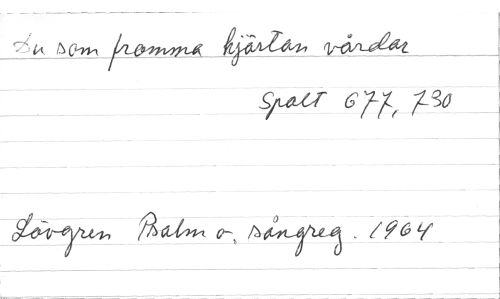 Du som fromma hjärtan vårdar
Spalt 677, 730
Lövgren Psalm o. sångreg. 1964